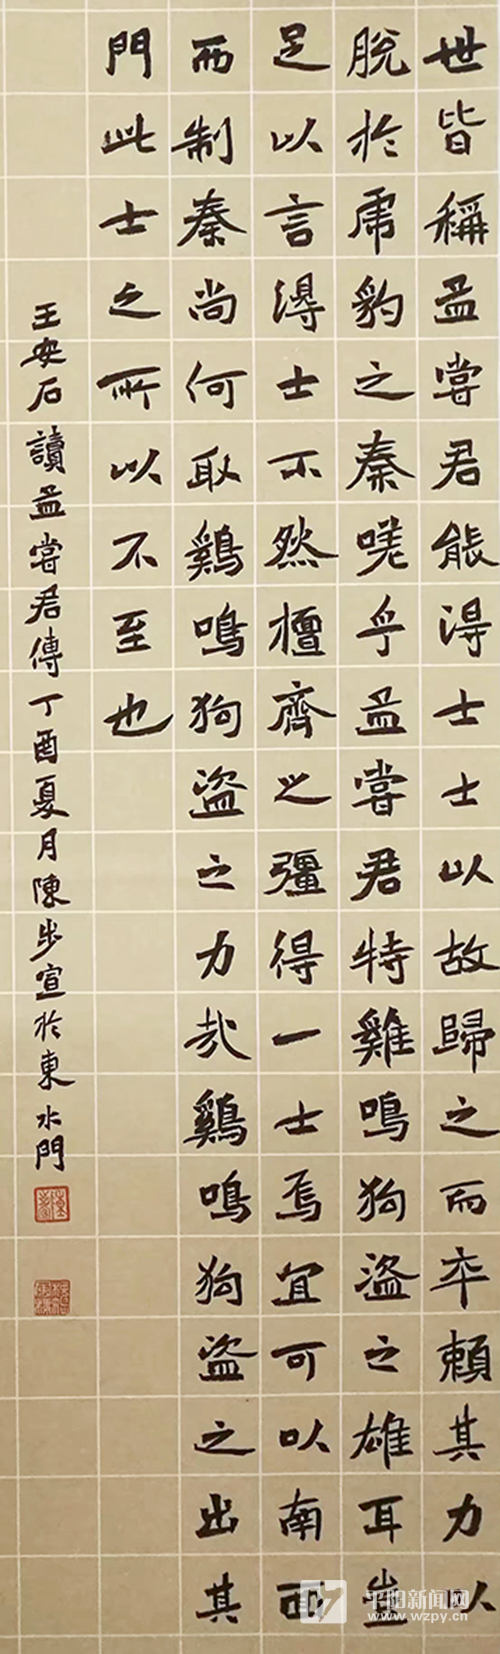 世皆稱孟嘗君能得士士以故歸之而卒賴其力以
脫於虎豹之秦嗟乎孟嘗君特雞鳴狗盜之雄耳豈
足以言得士不然擅齊之彊得一士焉宜可以南面
而制秦尚何取鷄鳴狗盜之力哉鷄鳴狗盜之出其
門此士之所以不至也
王安石讀孟嘗君傳丁酉夏月陳步宣於東水門
平阳新闻网
www.wzpy.cn